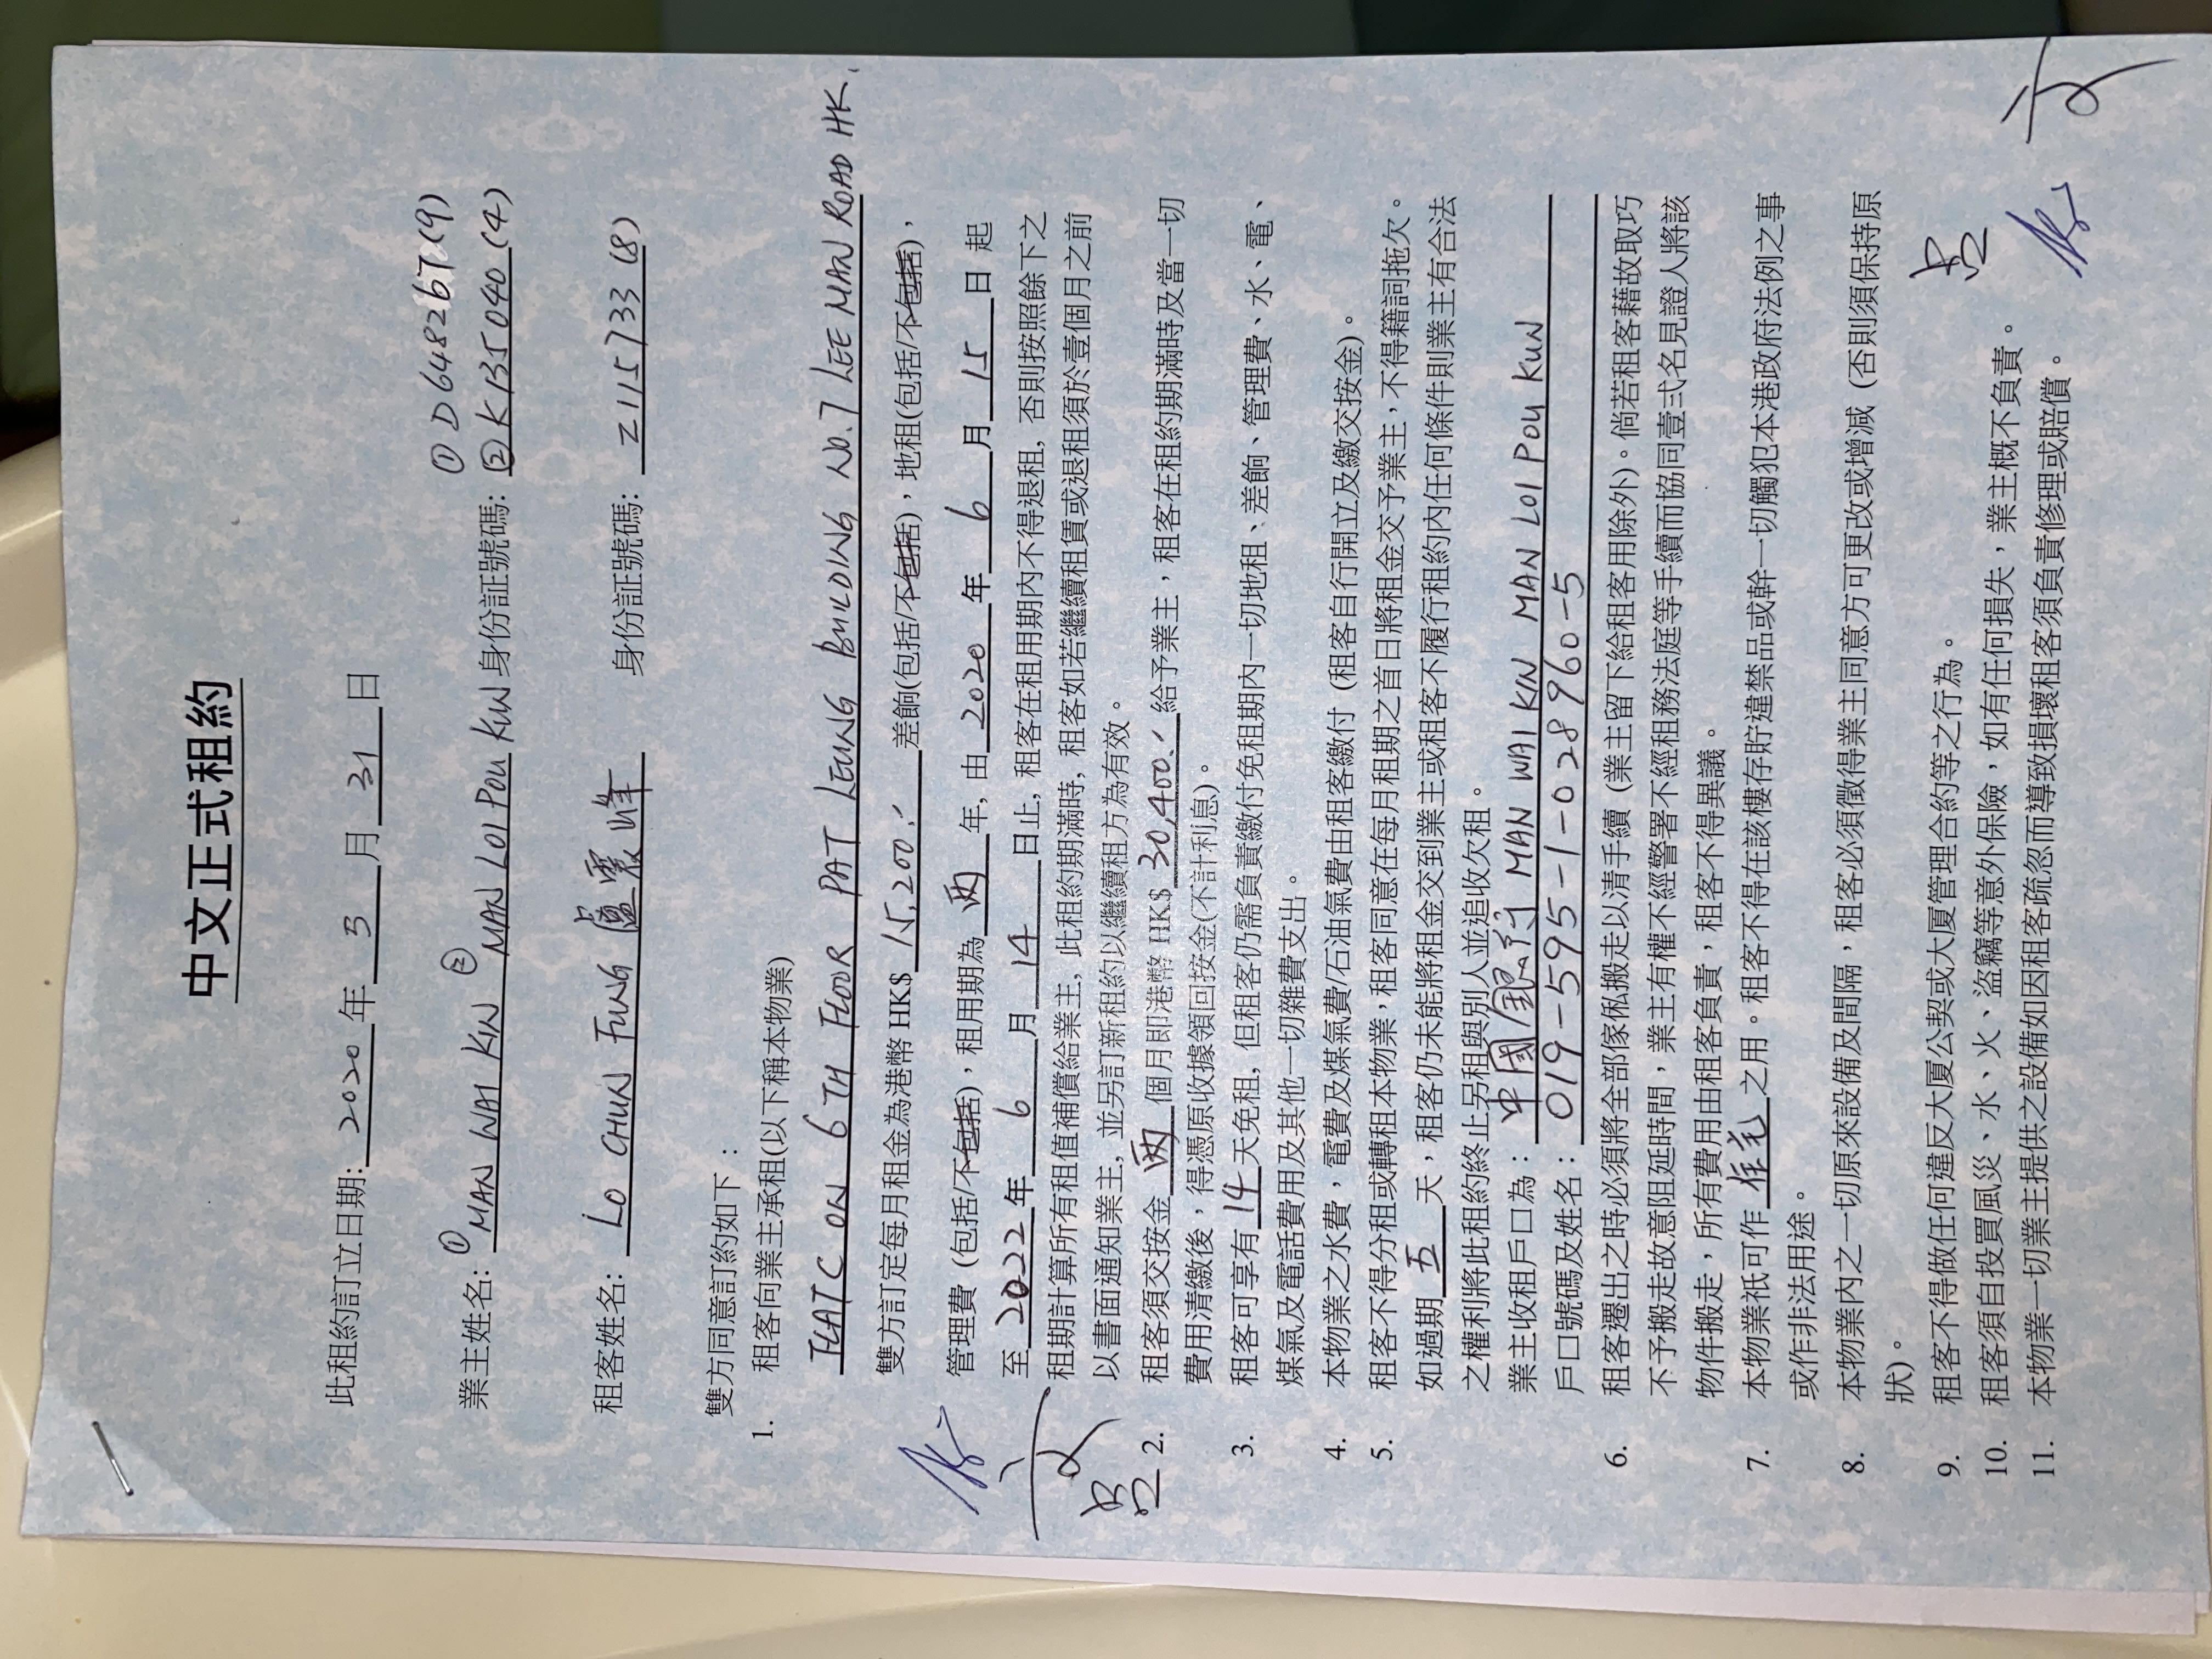 中文正式租約
此租約訂立日期: 2020 年 3 月 31 日
① D648267(9)
業主姓名: ① MAN WAI KIN ② MAN LOI POU KUN 身份証號碼: ② K135040(4)
租客姓名: LO CHUN FUNG 盧震峰 身份証號碼: Z115733(8)
雙方同意訂約如下：
1. 租客向業主承租(以下稱本物業)
FLAT C ON 6TH FLOOR PAT LEUNG BUILDING NO.7 LEE MAN ROAD HK.
雙方訂定每月租金為港幣 HK$ 15,200.- 差餉(包括/不包括)，地租(包括/不包括)，
管理費 (包括/不包括)，租用期為 两 年, 由 2020 年 6 月 15 日 起
至 2022 年 6 月 14 日止, 租客在租用期內不得退租, 否則按照餘下之
租期計算所有租值補償給業主, 此租約期滿時, 租客如若繼續租賃或退租須於壹個月之前
以書面通知業主, 並另訂新租約以繼續租方為有效。
2. 租客須交按金 两 個月即港幣 HK$ 30,400.- 給予業主，租客在租約期滿時及當一切
費用清繳後，得憑原收據領回按金(不計利息)。
3. 租客可享有 14 天免租, 但租客仍需負責繳付免租期內一切地租、差餉、管理費、水、電、
煤氣及電話費用及其他一切雜費支出。
4. 本物業之水費，電費及煤氣費/石油氣費由租客繳付 (租客自行開立及繳交按金)。
5. 租客不得分租或轉租本物業, 租客同意在每月租期之首日將租金交予業主, 不得籍詞拖欠。
如過期 五 天，租客仍未能將租金交到業主或租客不履行租約內任何條件則業主有合法
之權利將此租約終止另租與別人並追收欠租。
業主收租戶口為： 中國銀行 MAN WAI KIN MAN LOI POU KUN
戶口號碼及姓名： 019-595-1-028960-5
6. 租客遷出之時必須將全部傢俬搬走以清手續 (業主留下給租客用除外)。倘若租客藉故取巧
不予搬走故意阻延時間，業主有權不經警署不經租務法庭等手續而協同壹弍名見證人將該
物件搬走，所有費用由租客負責，租客不得異議。
7. 本物業祇可作 住宅 之用。租客不得在該樓存貯違禁品或幹一切觸犯本港政府法例之事
或作非法用途。
8. 本物業內之一切原來設備及間隔，租客必須徵得業主同意方可更改或增減 (否則須保持原
狀)。
9. 租客不得做任何違反大厦公契或大厦管理合約等之行為。
10. 租客須自投買風災、水、火、盜竊等意外保險，如有任何損失，業主概不負責。
11. 本物業一切業主提供之設備如因租客疏忽而導致損壞租客須負責修理或賠償。